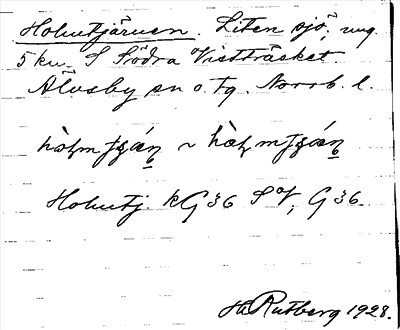 Holmtjärnen. Liten sjö, ung.
5 km. S Södra Vistträsket.
Älvsby sn o. tg. Norrb. l.
Holmtj. KG 36 SV, G 36.
Hj Rutberg 1928.